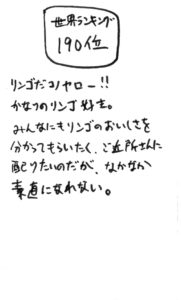 世界ランキング
190位
リンゴだコノヤロー!!
かなりのリンゴ好き。
みんなにもリンゴのおいしさを
分かってもらいたく、ご近所さんに
配りたいのだが、なかなか
素直になれない。